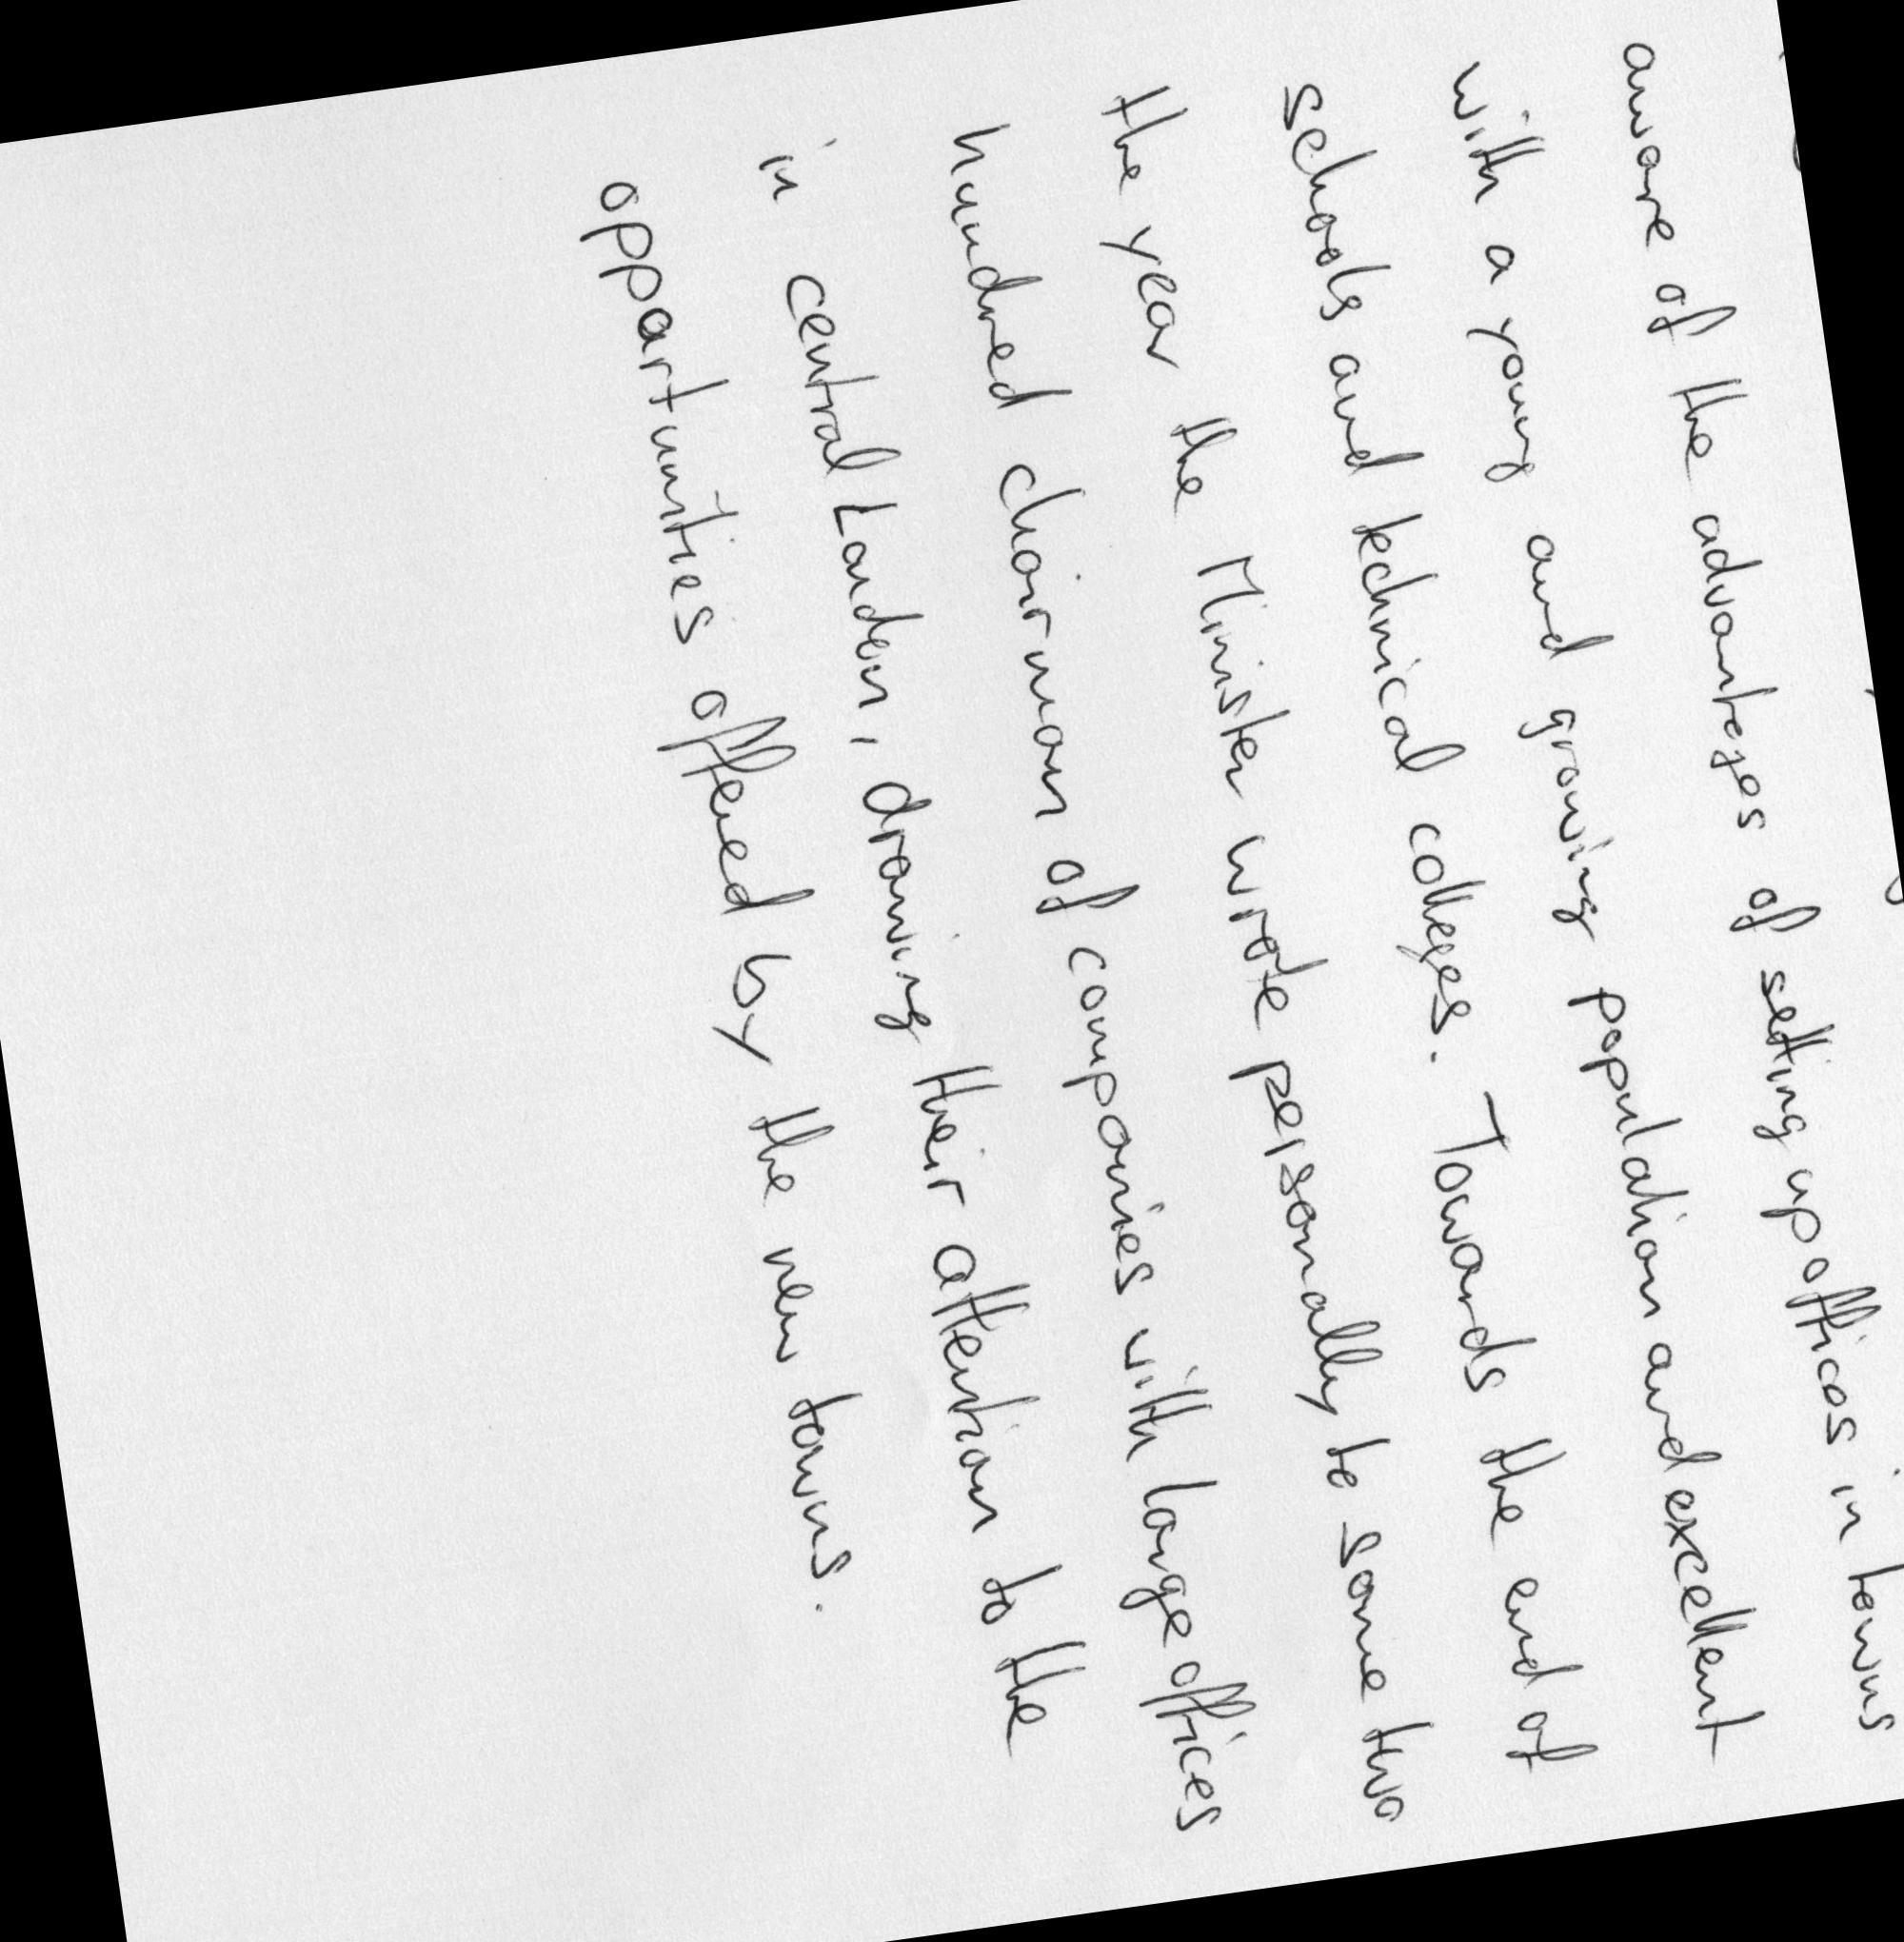 aware of the advantages of setting up offices in towns
with a young and growing population and excellent
schools and technical colleges. Towards the end of
the year the Minister wrote personally to some two
hundred chairman of companies with large offices
in central London, drawing their attention to the
opportunities offered by the new towns.